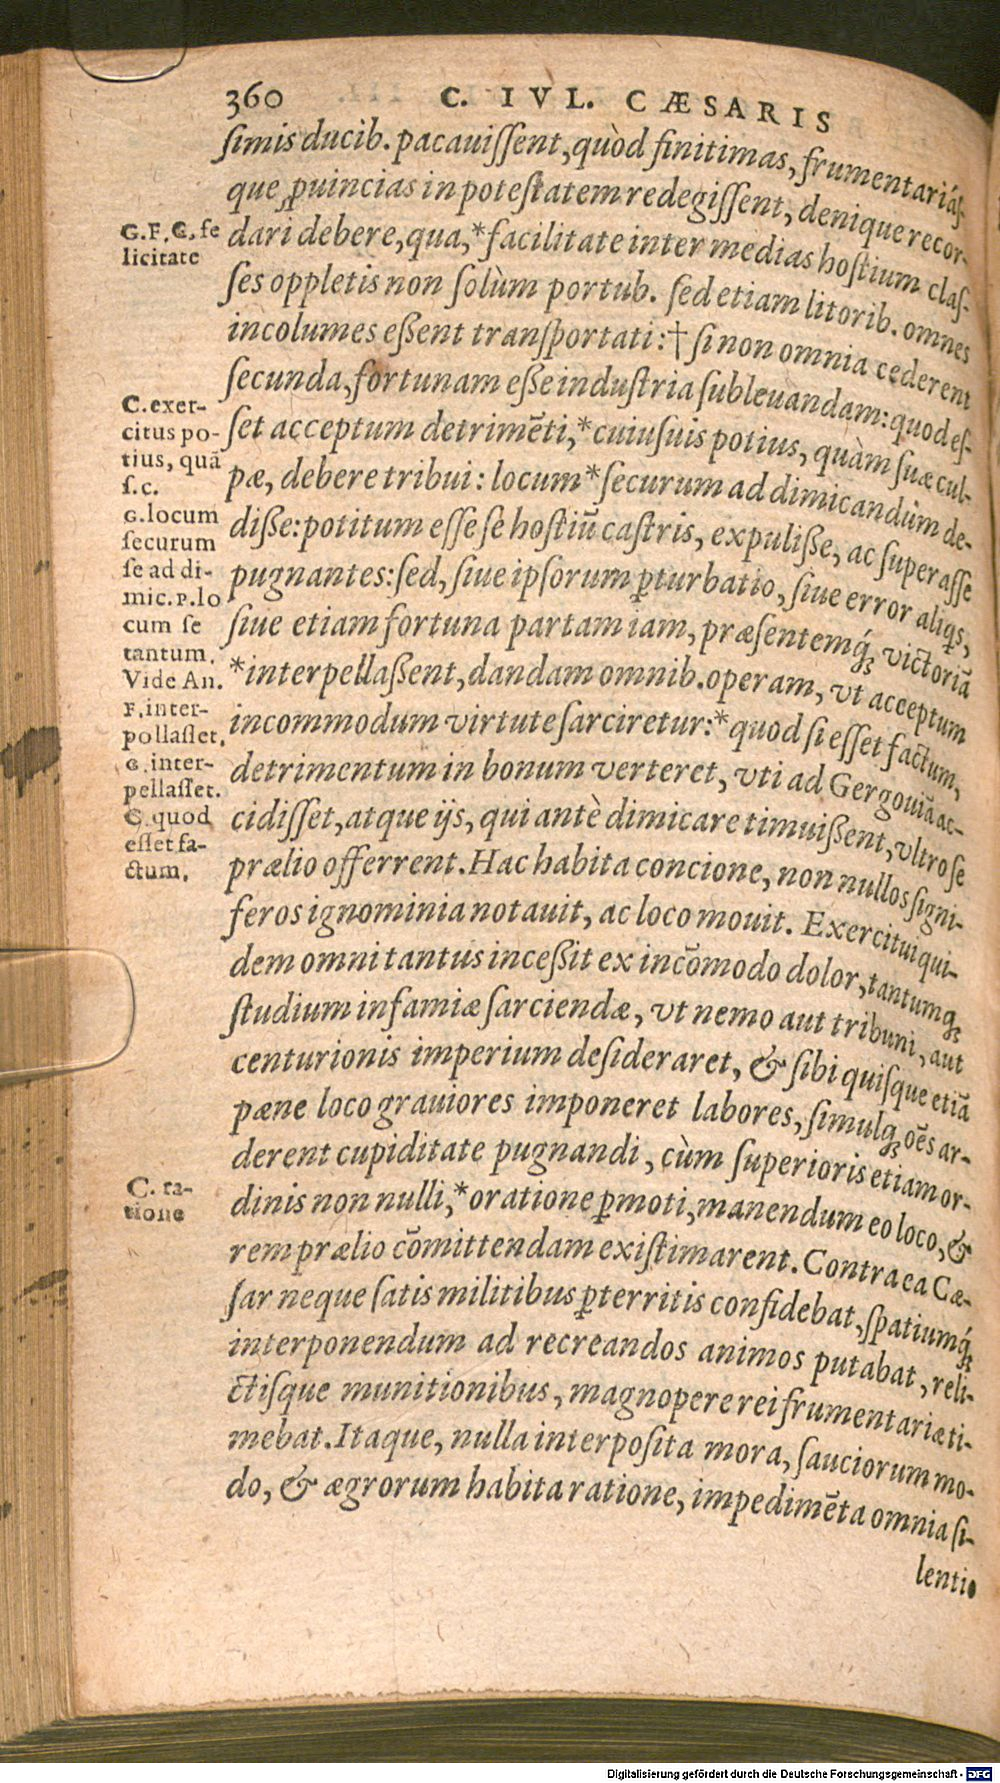 360 C. IVL. CÆSARIS
ſimis ducib. pacauiſſent, quòd finitimas, frumentariáſ-
que ꝓuincias in poteſtatem redegiſſent, denique recor-
dari debere, qua,*facilitate inter medias hoſtium claſ-
ſes oppletis non ſolùm portub. ſed etiam litorib. omnes
incolumes eßent tranſportati:† ſi non omnia cederent
ſecunda, fortunam eße induſtria ſubleuandam: quod eſ-
ſet acceptum detrimēti,*cuiuſuis potius, quàm ſuæ cul-
pæ, debere tribui: locum*ſecurum ad dimicandùm de-
diße: potitum eſſe ſe hoſtiū caſtris, expuliße, ac ſuperaſſe
pugnantes: ſed, ſiue ipſorum ꝑturbatio, ſiue error aliqs,
ſiue etiam fortuna partam iam, præſentemq́; victoriā
*interpellaßent, dandam omnib. operam, vt acceptum
incommodum virtute ſarciretur:*quod ſi eſſet factum,
detrimentum in bonum verteret, vti ad Gergouiā ac-
cidiſſet, atque ijs, qui antè dimicare timuißent, vltro ſe
prælio offerrent. Hac habita concione, non nullos ſigni-
feros ignominia notauit, ac loco mouit. Exercitui qui-
dem omni tantus inceßit ex incōmodo dolor, tantumq;
ſtudium infamiæ ſarciendæ, vt nemo aut tribuni, aut
centurionis imperium deſideraret, & ſibi quiſque etiā
pæne loco grauiores imponeret labores, ſimulq; oēs ar-
derent cupiditate pugnandi, cùm ſuperioris etiam or-
dinis non nulli,*oratione ꝑmoti, manendum eo loco, &
rem prælio cōmittendam exiſtimarent. Contra ea Cæ-
ſar neque ſatis militibus ꝑterritis confidebat, ſpatiumq́;
interponendum ad recreandos animos putabat, reli-
ctiſque munitionibus, magnopere rei frumentariæ ti-
mebat. Itaque, nulla interpoſita mora, ſauciorum mo-
do, & ægrorum habita ratione, impedimēta omnia ſi-
lentio
G. F. C. fe
licitate
C. exer-
citus po-
tius, quā
ſ. c.
G. locum
ſecurum
ſe ad di-
mic. P. lo
cum ſe
tantum.
Vide An.
F. inter-
pollaſſet.
G. inter-
pellaſſet.
C. quod
eſſet fa-
ctum.
C. ra-
tione
Digitalisierung gefördert durch die Deutsche Forschungsgemeinschaft - DFG